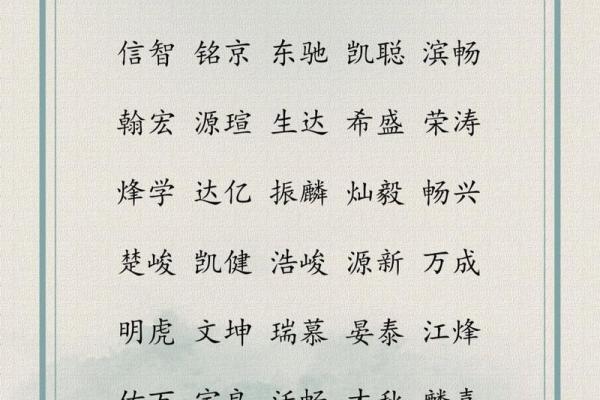 信智 铭京 东驰 凯聪 滨畅
翰宏 源瑄 生达 希盛 荣涛
烽学 达亿 振麟 灿毅 畅兴
楚峻 凯健 浩峻 源新 万成
明虎 文坤 瑞慕 晏泰 江烽